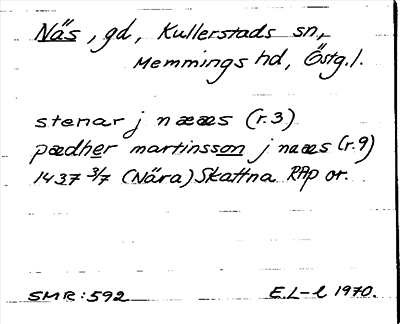 Näs, gd, Kullerstads sn,
Memmings hd, Östg.l.
stenar j nææs (r.3)
pædher martinsson j naæs (r.9)
1437 3/7 (Nära) Skattna RAp or.
SMR:592 E.L-l 1970.